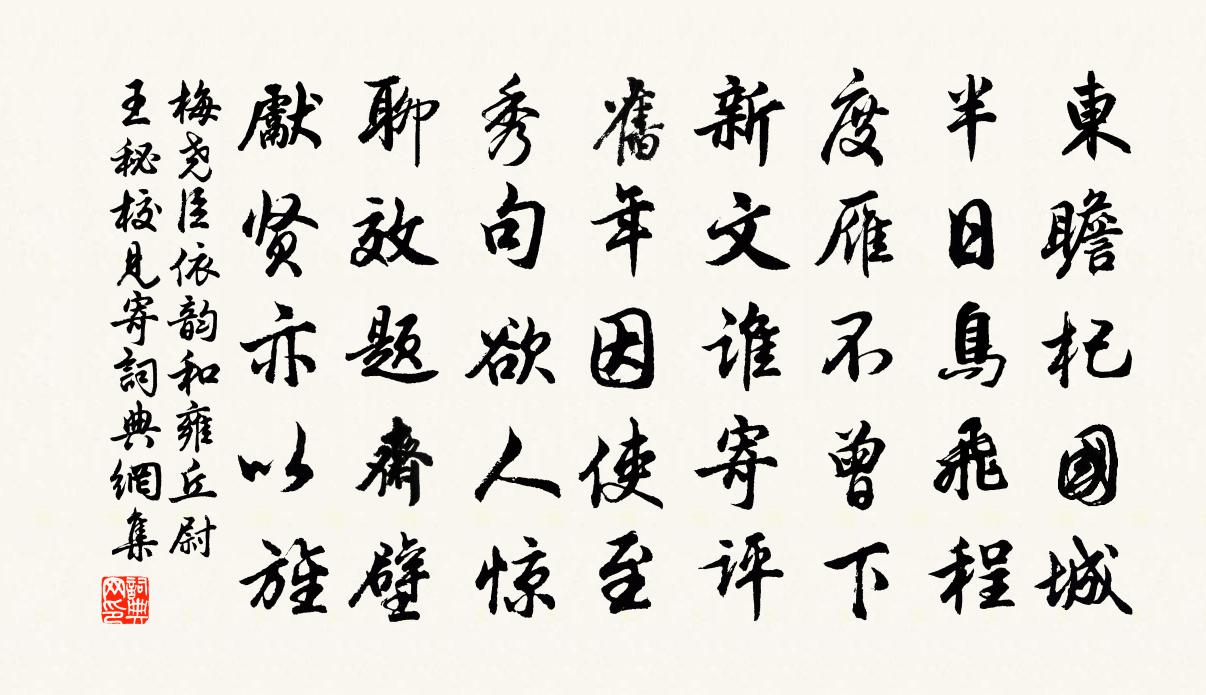 東瞻杞國城
半日鳥飛程
度雁不曾下
新文谁寄评
舊年因使至
秀句欲人惊
聊效题齋壁
獻贤亦以旌
梅尧臣依韵和雍丘尉
王秘校見寄詞典網集
詞典网印